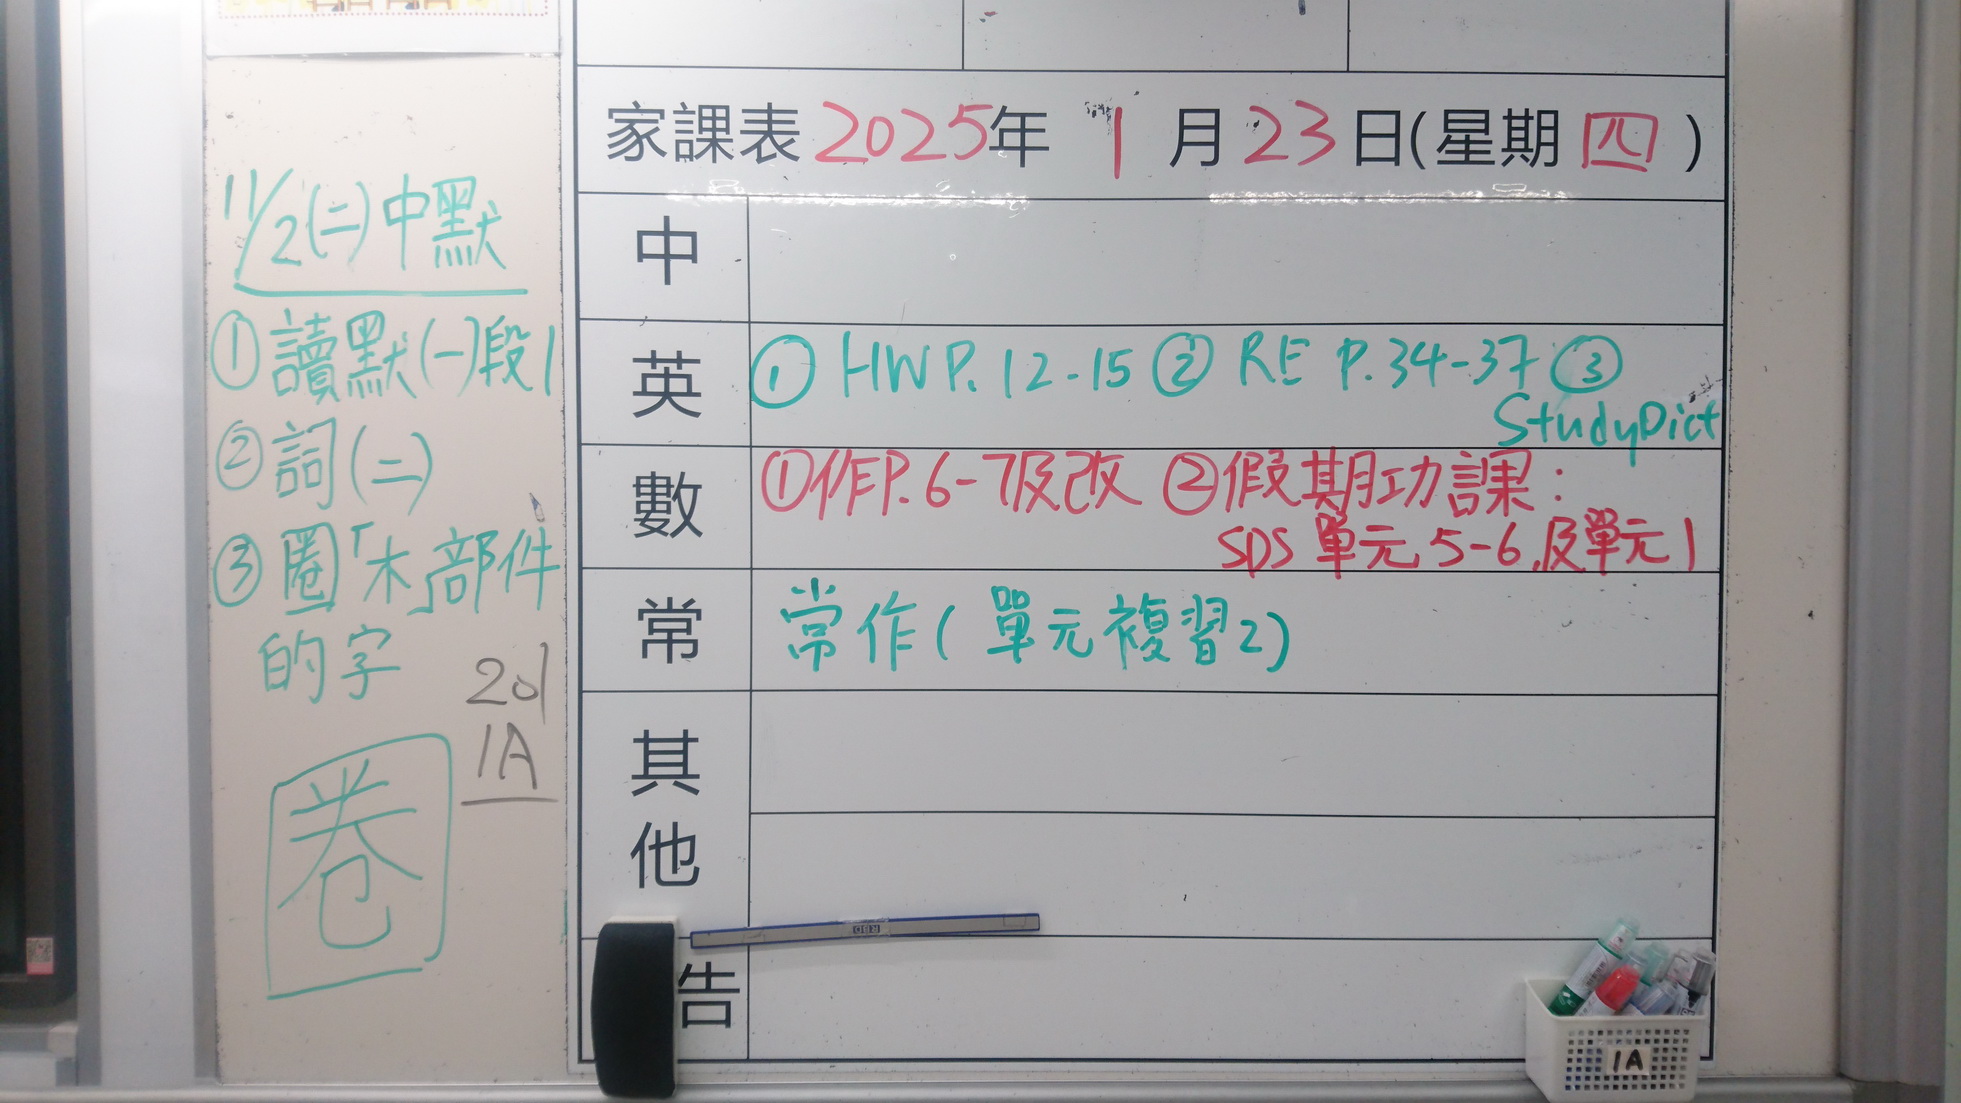 11/2(二)中默
①讀默(一)段1
②詞(二)
③圈「木」部件
的字
201
1A
圈
家課表2025年 1月23日(星期四)
中
英 ① HW P.12-15 ② RE P.34-37 ③
StudyDict
數 ①作P.6-7及改 ②假期功課:
SDS 單元 5-6,及單元1
常 常作(單元複習2)
其
他
告
1A